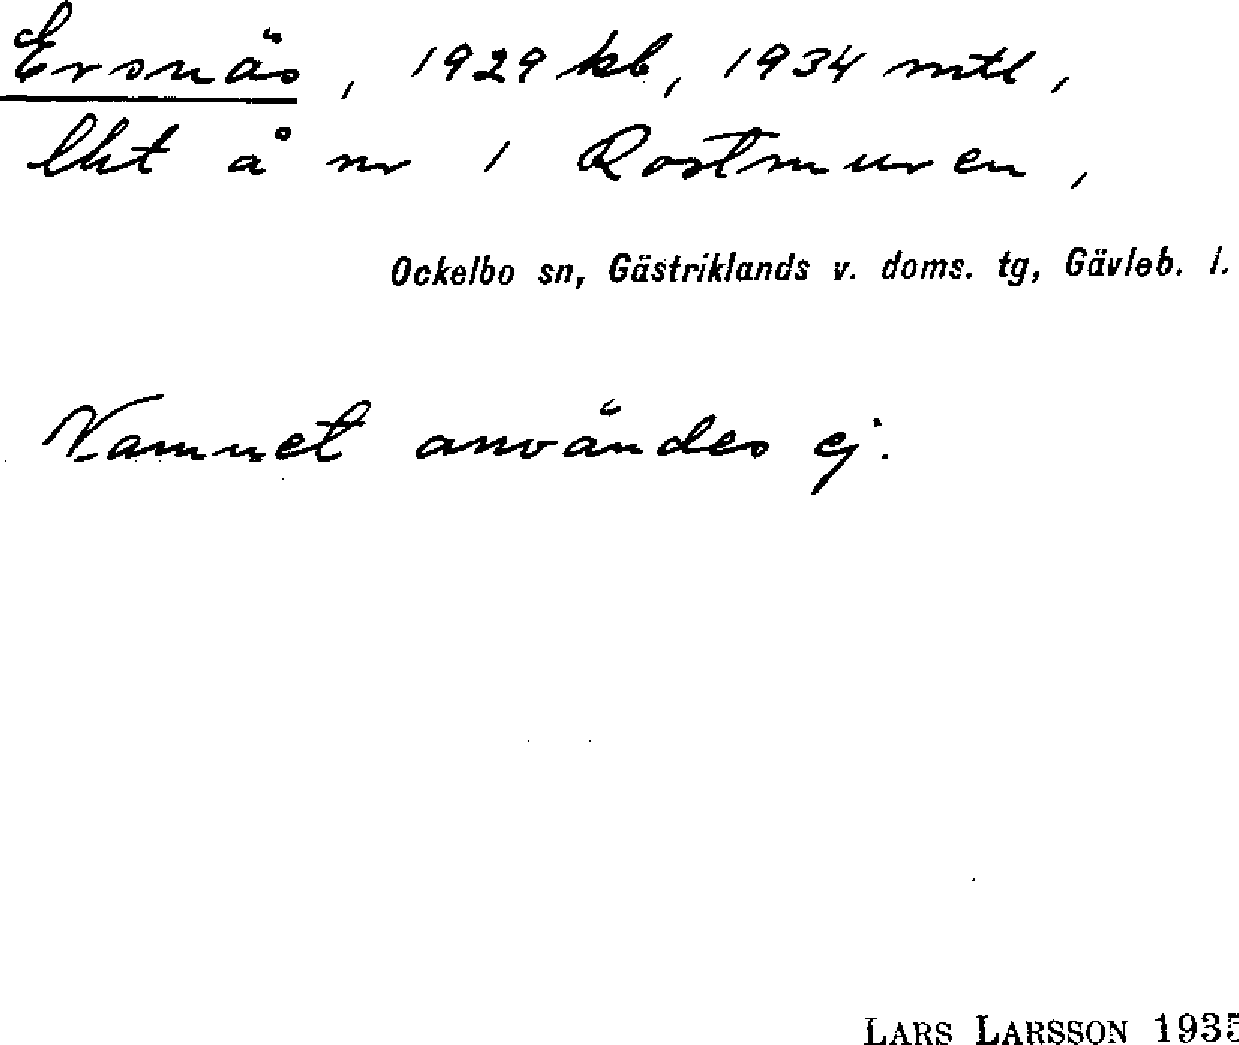 Ersnäs, 1929 kb, 1934 mtl,
lht å nr 1 Rostmuren,
Ockelbo sn, Gästriklands v. doms. tg, Gävleb. l.
Namnet användes ej.
LARS LARSSON 1935